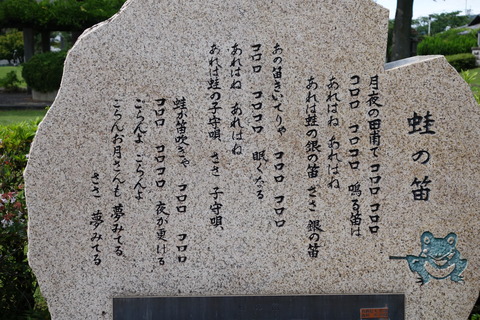 蛙の笛
月夜の田甫で コロロ コロロ
コロロ コロコロ 鳴る笛は
あれはね あれはね
あれは蛙の銀の笛 ささ 銀の笛
あの笛きいてりゃ コロロ コロロ
コロロ コロコロ 眠くなる
あれはね あれはね
あれは蛙の子守唄 ささ 子守唄
蛙が笛吹きゃ コロロ コロロ
コロロ コロコロ 夜が更ける
ごらんよ ごらんよ
ごらんお月さんも 夢みてる
ささ 夢みてる